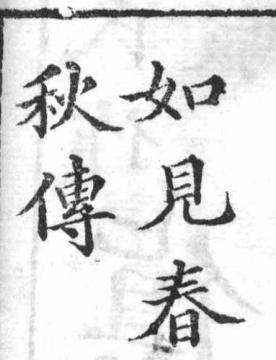 如見春
秋傳